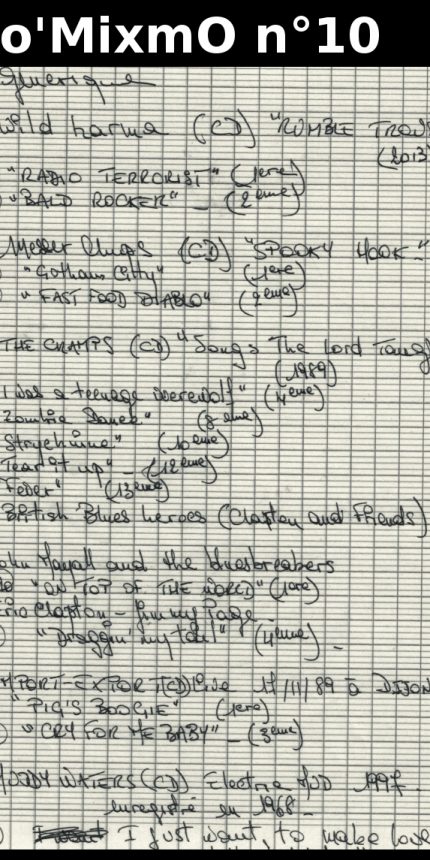 o'MixmO n°10
Générique
Wild Karma (CD) "RUMBLE
(2013
"RADIO TERRORIST" (1ere)
"BALD ROCKER" _ (2ème)
(CD) "SPOOKY HOOK."
"Gotham City" (1ere)
"FAST FOOD DIABLO" (2eme)
THE CRAMPS (CD) "Songs The Lord Taug
(1989)
I was a teenage werewolf" (4eme)
Zombie Dance" (8eme)
Strychnine" (10eme)
Tear it up" _ (12eme)
Fever" (13eme)
British Blues heroes (Clapton and Friends)
ohn Mayall and the bluesbreakers
"ON TOP OF THE WORLD" (1ere)
ric Clapton - Jimmy Page _
"Draggin' my tail" (4eme) _
MPORT-EXPORT (CD) Live 11/11/89 à DIJON
"PIG'S BOOGIE" (1ere)
"CRY FOR ME BABY" _ (3eme)
OODY WATERS (CD) Electric MUD 1997 -
enregistré en 1968 -
I just want, to make love